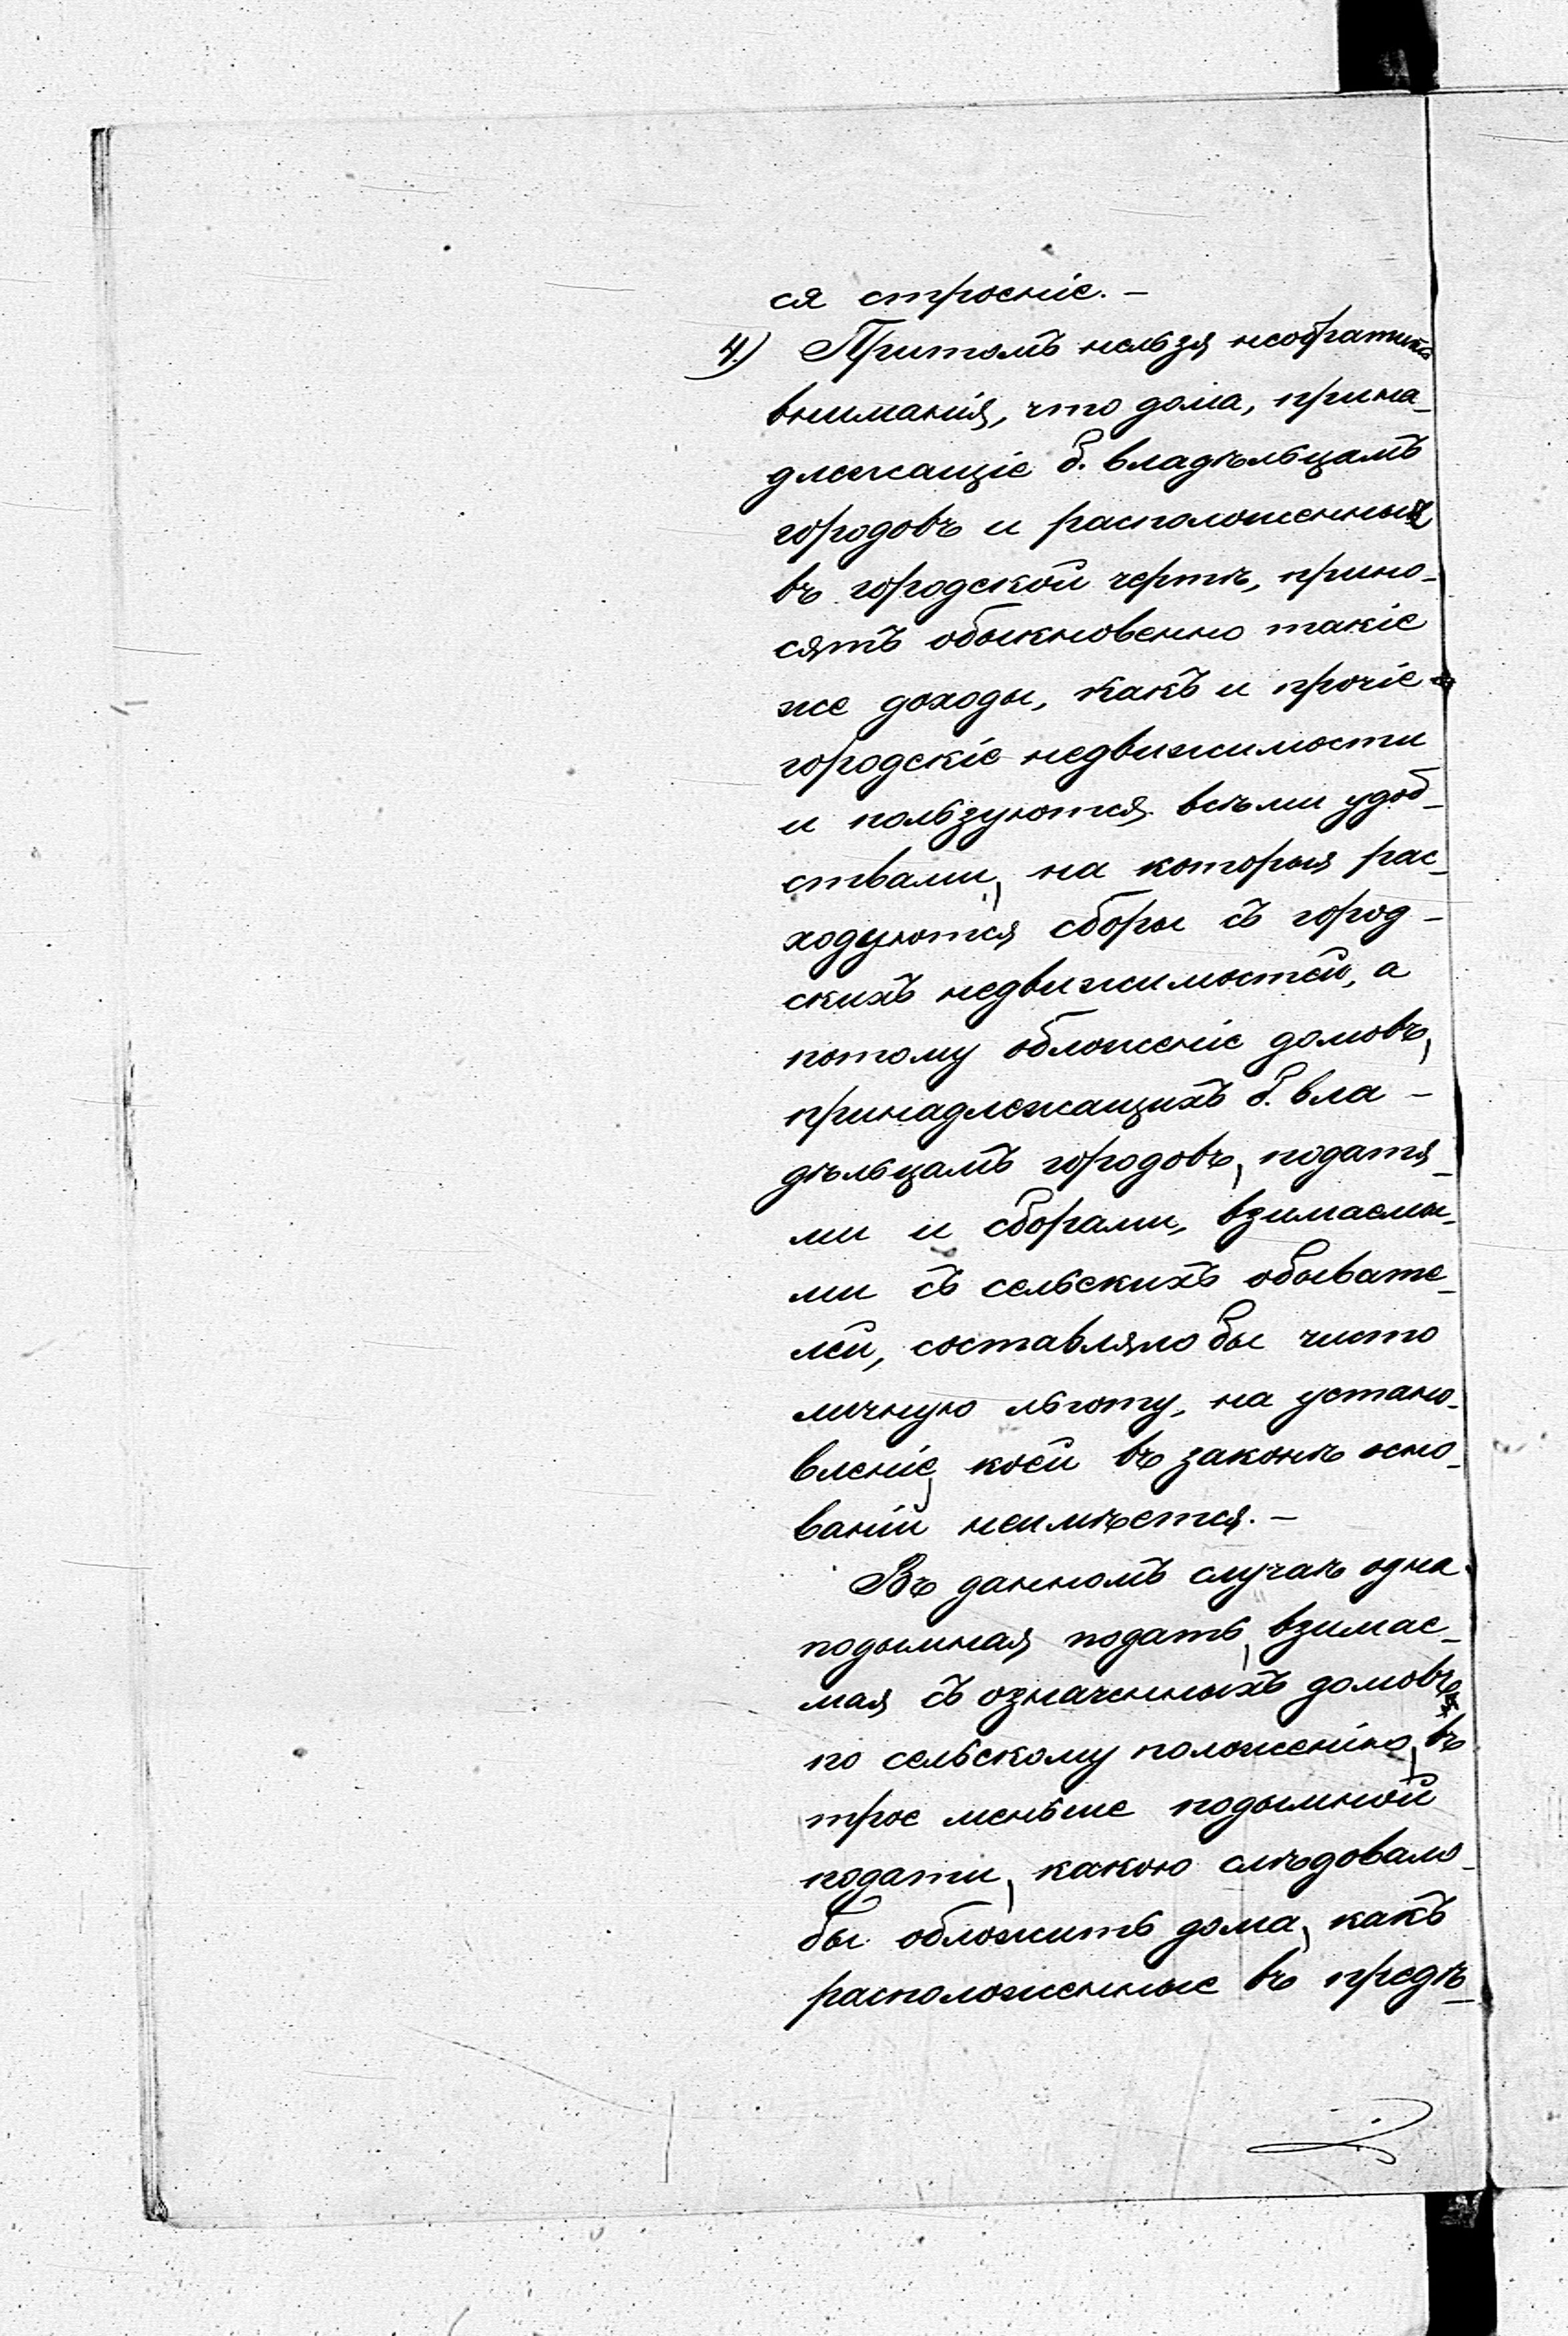 ся строеніе. —
4.) Притомъ нельзя необратить
вниманія, что дома, прина-
длежащіе б. владѣльцамъ
городовъ и расположенныя
въ городской чертѣ, прино-
сятъ обыкновенно такіе
же доходы, какъ и прочіе
городскіе недвижимости
и пользуются всѣми удоб-
ствами, на которыя рас-
ходуются сборы съ город-
скихъ недвижимостей, а
потому обложеніе домовъ,
принадлежащихъ б. вла-
дѣльцамъ городовъ, податя-
ми и сборами, взимаемы-
ми съ сельскихъ обывате-
лей, составляло бы чисто
личную льготу, на устано-
вленіе коей въ законѣ осно-
ваній неимѣется. —
Въ данномъ случаѣ одна
подымная подать, взимае-
мая съ означенныхъ домовъ
по сельскому положенію, въ
трое меньше подымной
подати, какою слѣдовало-
бы обложить дома, какъ
расположенные въ предѣ-